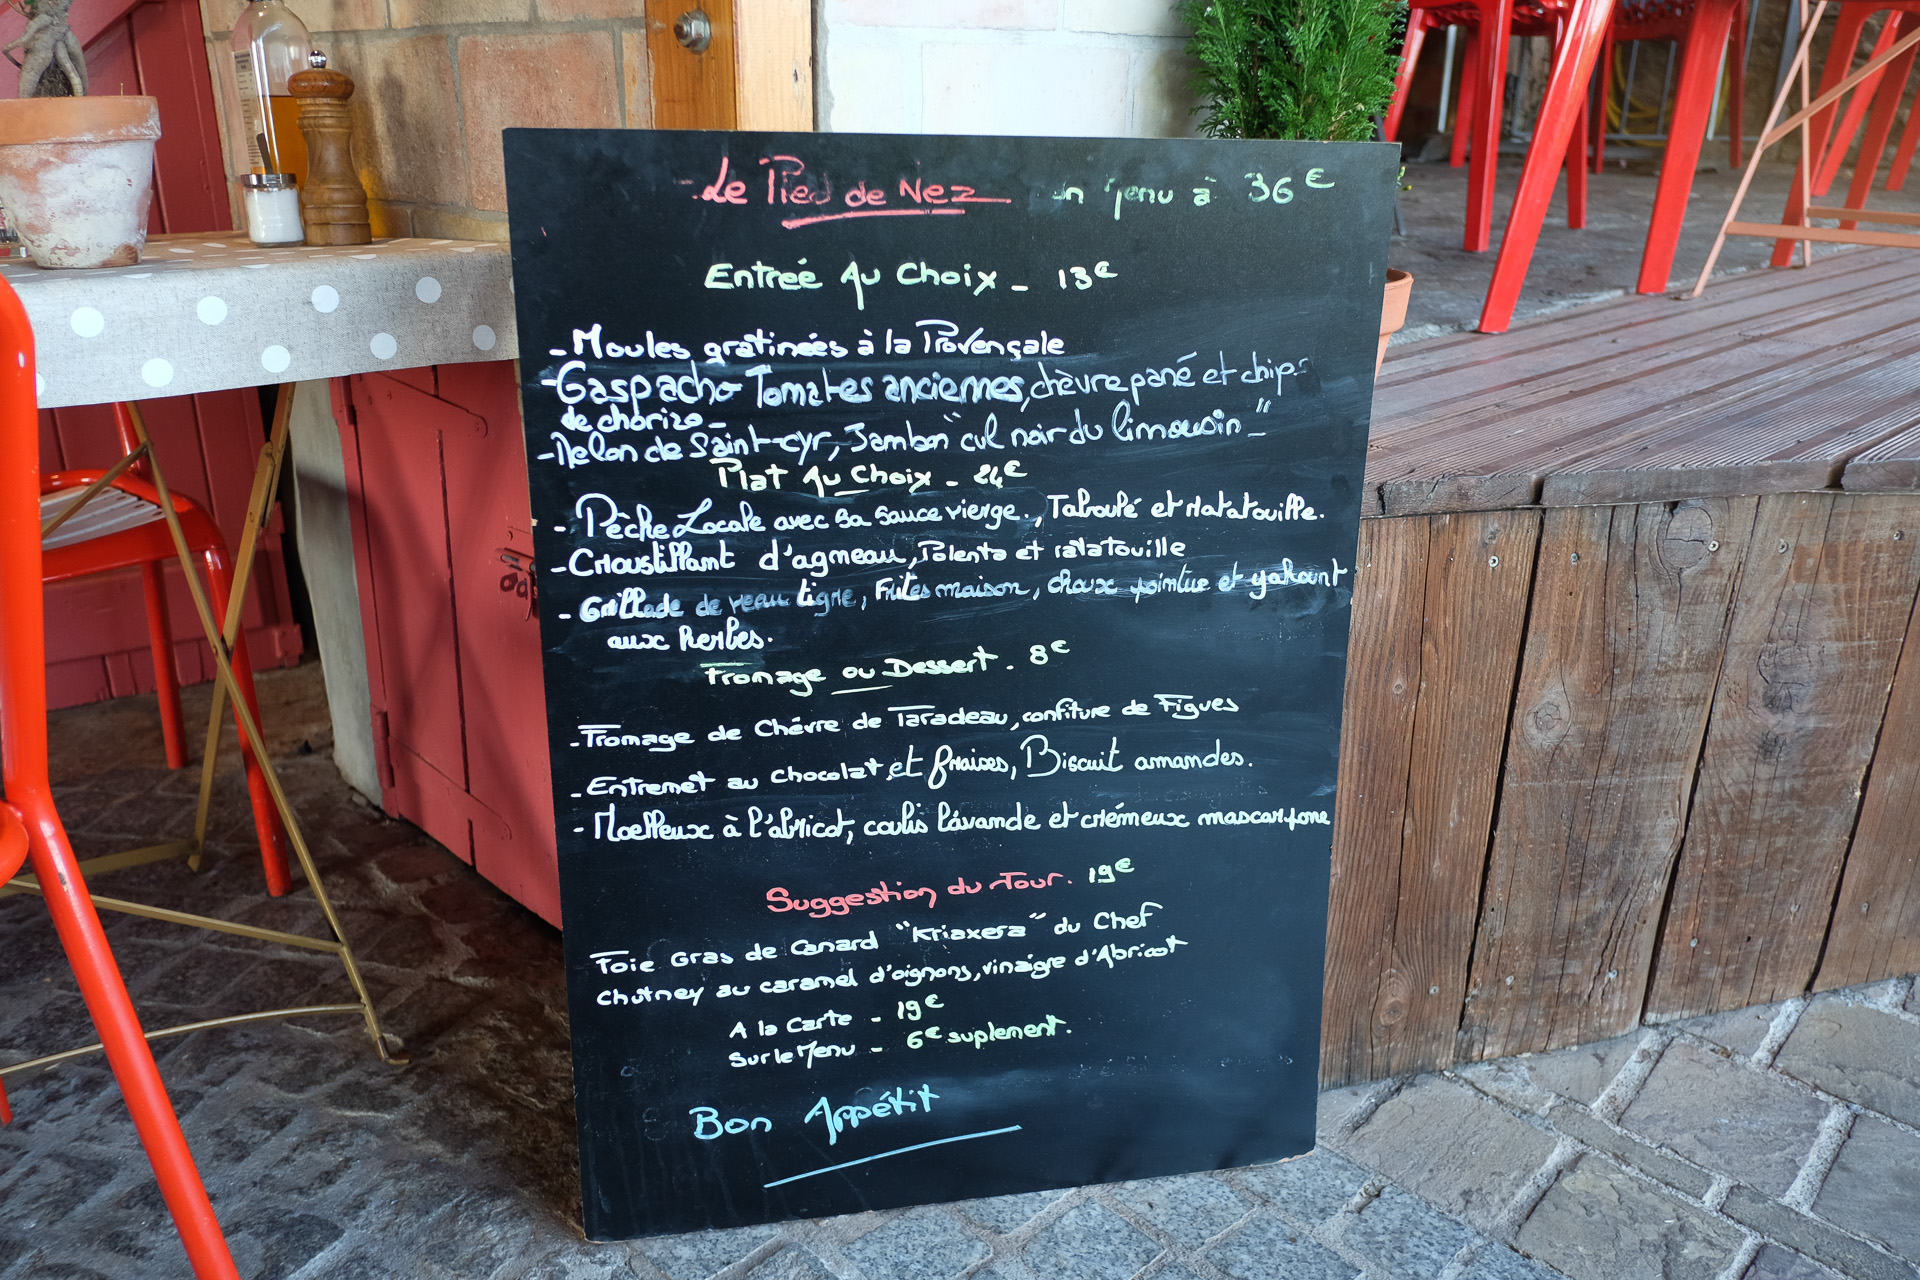 Le Pied de Nez un Menu à 36€
Entrée Au Choix - 13€
- Moules gratinées à la Provençale
- Gaspacho Tomates anciennes, chèvre pané et chips
de chorizo -
- Melon de Saint-cyr, Jambon "cul noir du limousin" -
Plat Au Choix - 24€
- Pêche Locale avec sa sauce vierge., Taboulé et Ratatouille.
- Croustillant d'agneau, Polenta et ratatouille
- Grillade de veau tigre, Frites maison, choux pointue et yahourt
aux herbes.
Fromage ou Dessert. 8€
- Fromage de Chévre de Taradeau, confiture de Figues
- Entremet au chocolat et fraises, Biscuit amandes.
- Moelleux à l'abricot, coulis lavande et crémeux mascarpone
Suggestion du Jour. 19€
Foie Gras de Canard "Kriaxera" du Chef
Chutney au caramel d'oignons, vinaigre d'Abricot
A la Carte - 19€
Sur le Menu - 6€ suplement.
Bon Appétit